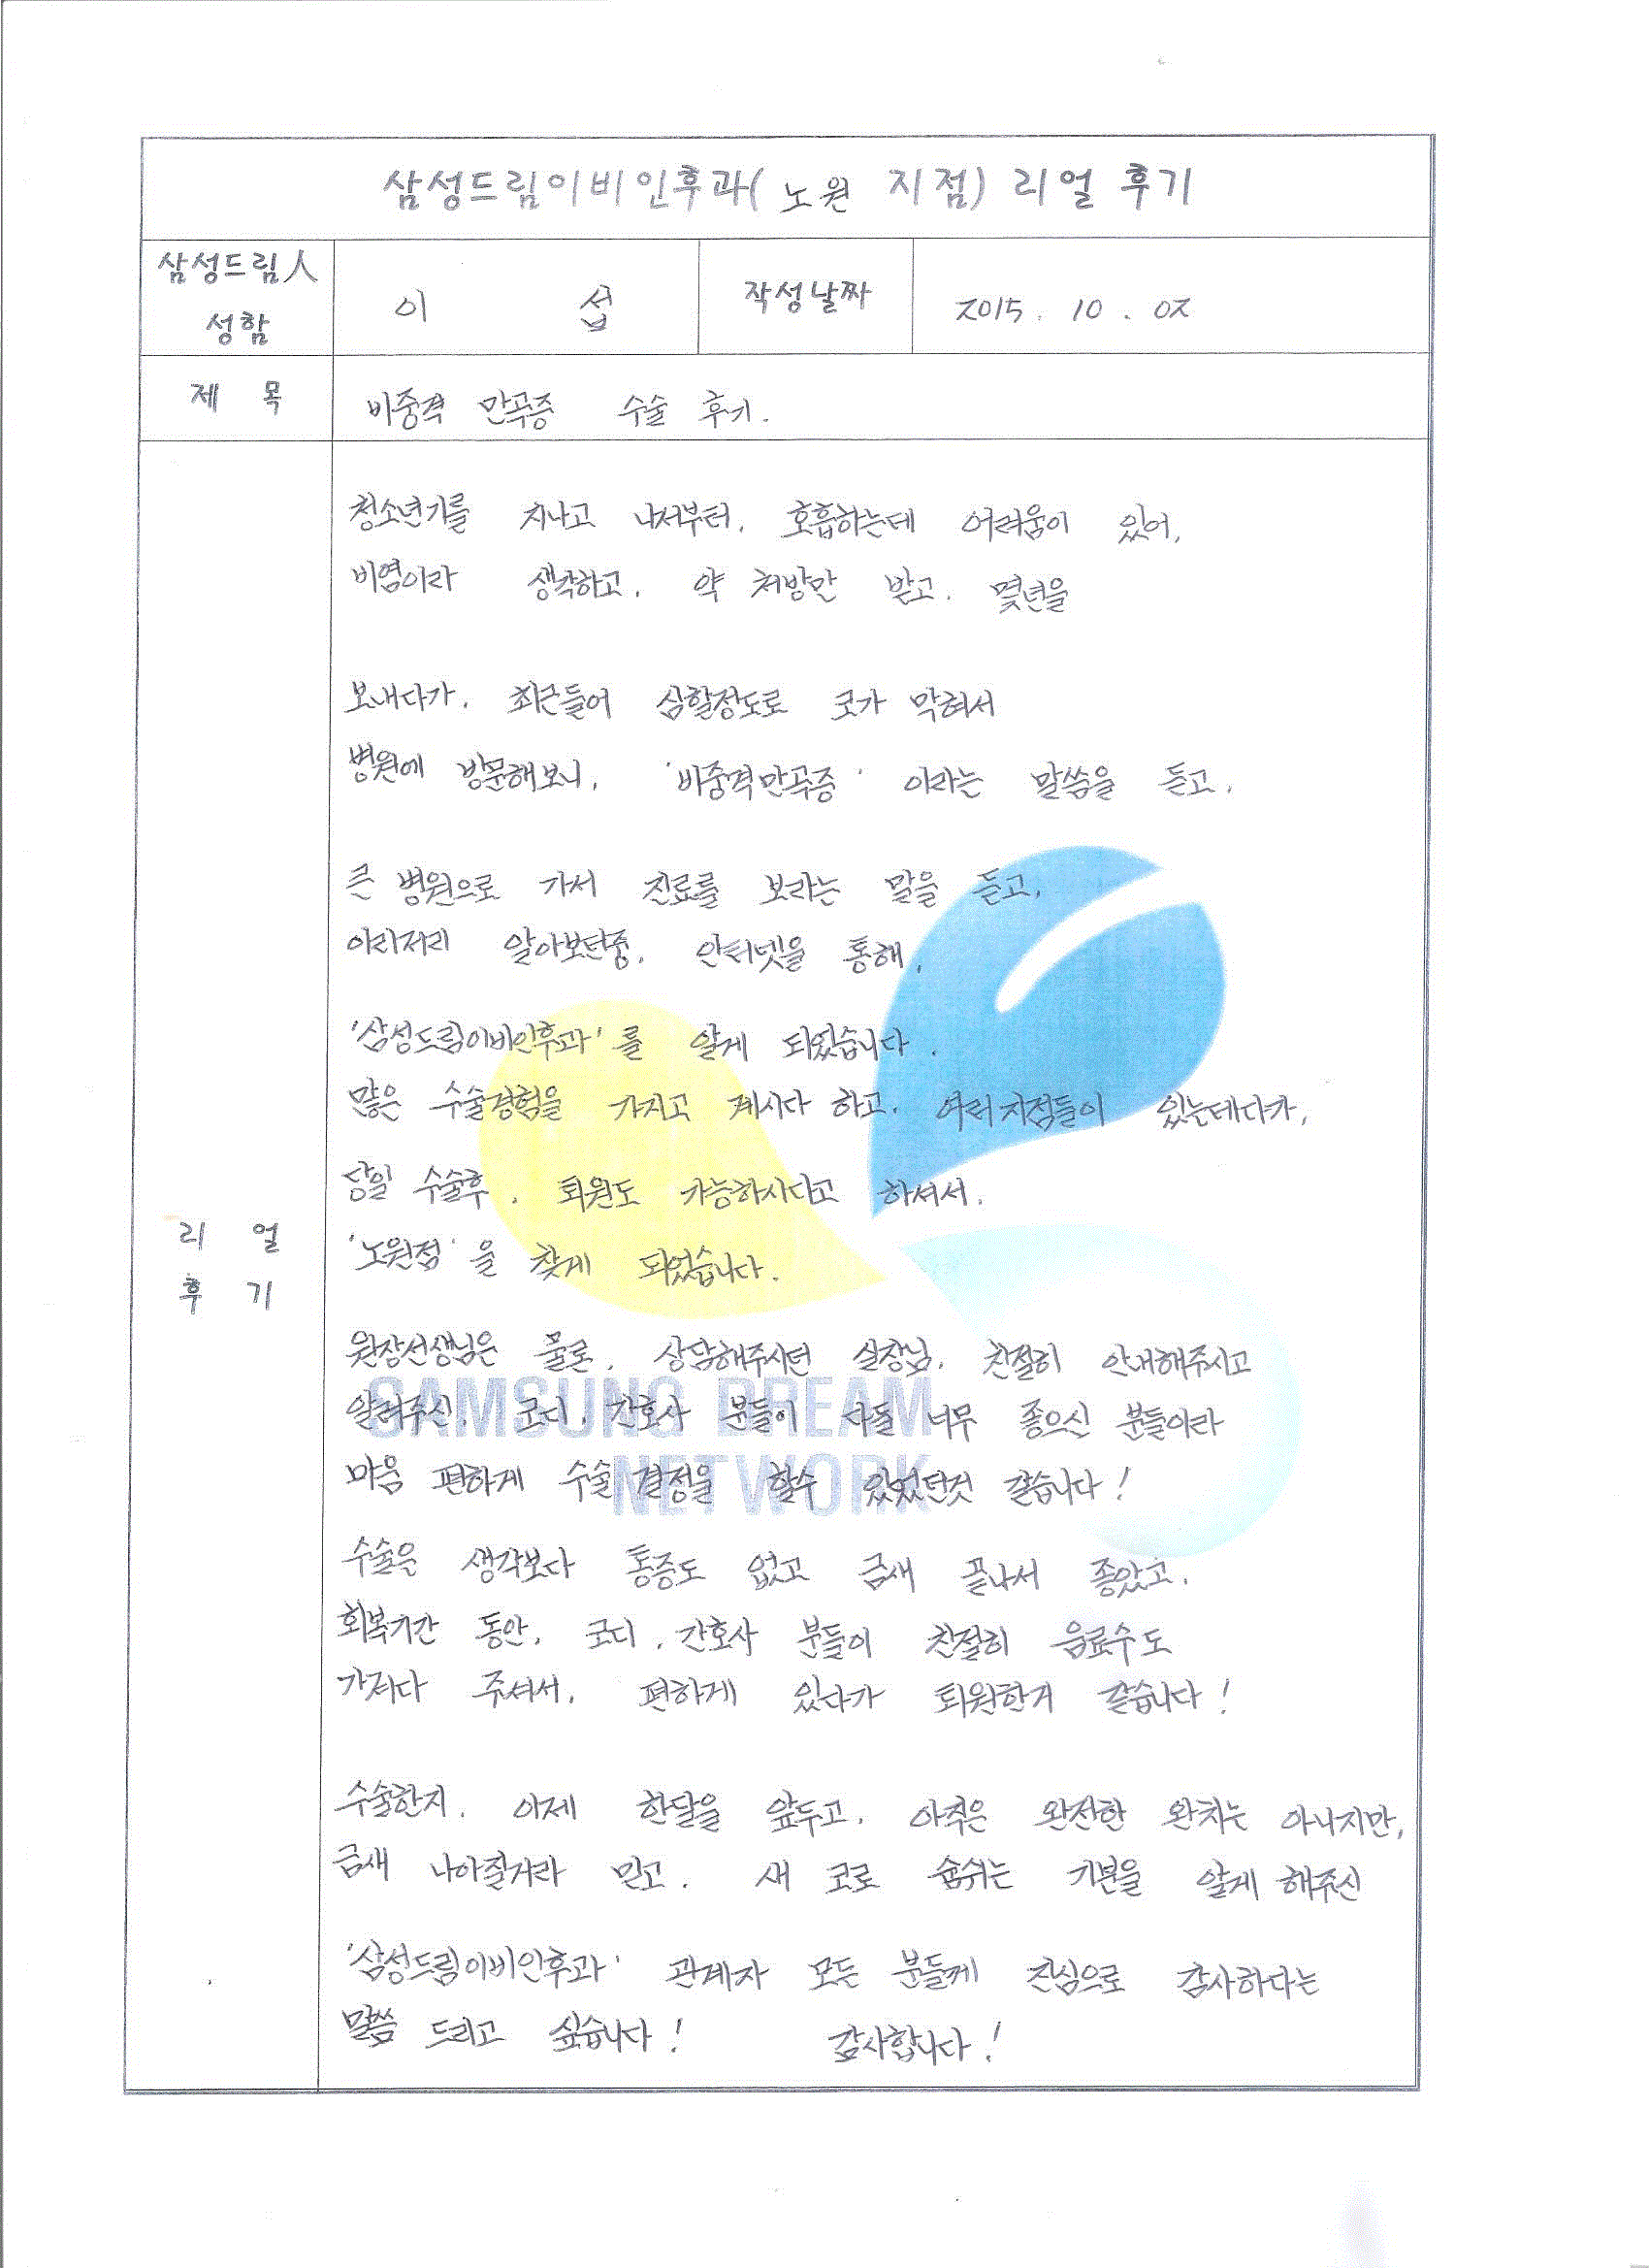 삼성드림이비인후과( 노원 지점) 리얼 후기
삼성드림人 성함 이 섭 작성날짜 2015. 10. 02
제 목 비중격 만곡증 수술 후기.
청소년기를 지나고 나서부터, 호흡하는데 어려움이 있어,
비염이라 생각하고, 약 처방만 받고, 몇년을
보내다가, 최근들어 심할정도로 코가 막혀서
병원에 방문해보니, '비중격만곡증' 이라는 말씀을 듣고,
큰 병원으로 가서 진료를 보라는 말을 듣고,
이리저리 알아보던중, 인터넷을 통해,
'삼성드림이비인후과'를 알게 되었습니다.
많은 수술경험을 가지고 계시다 하고, 여러지점들이 있는데다가,
당일 수술후, 퇴원도 가능하시다고 하셔서,
'노원점'을 찾게 되었습니다.
리 얼
후 기
원장선생님은 물론, 상담해주시던 실장님, 친절히 안내해주시고
알려주신, 코디, 간호사 분들이 다들 너무 좋으신 분들이라
마음 편하게 수술 결정을 할수 있었던것 같습니다!
수술은 생각보다 통증도 없고 금새 끝나서 좋았고,
회복기간 동안, 코디, 간호사 분들이 친절히 음료수도
가져다 주셔서, 편하게 있다가 퇴원한거 같습니다!
수술한지, 이제 한달을 앞두고, 아직은 완전한 완치는 아니지만,
금새 나아질거라 믿고, 새 코로 숨쉬는 기분을 알게 해주신
'삼성드림이비인후과' 관계자 모든 분들께 진심으로 감사하다는
말씀 드리고 싶습니다! 감사합니다!
SAMSUNG DREAM
NETWORK